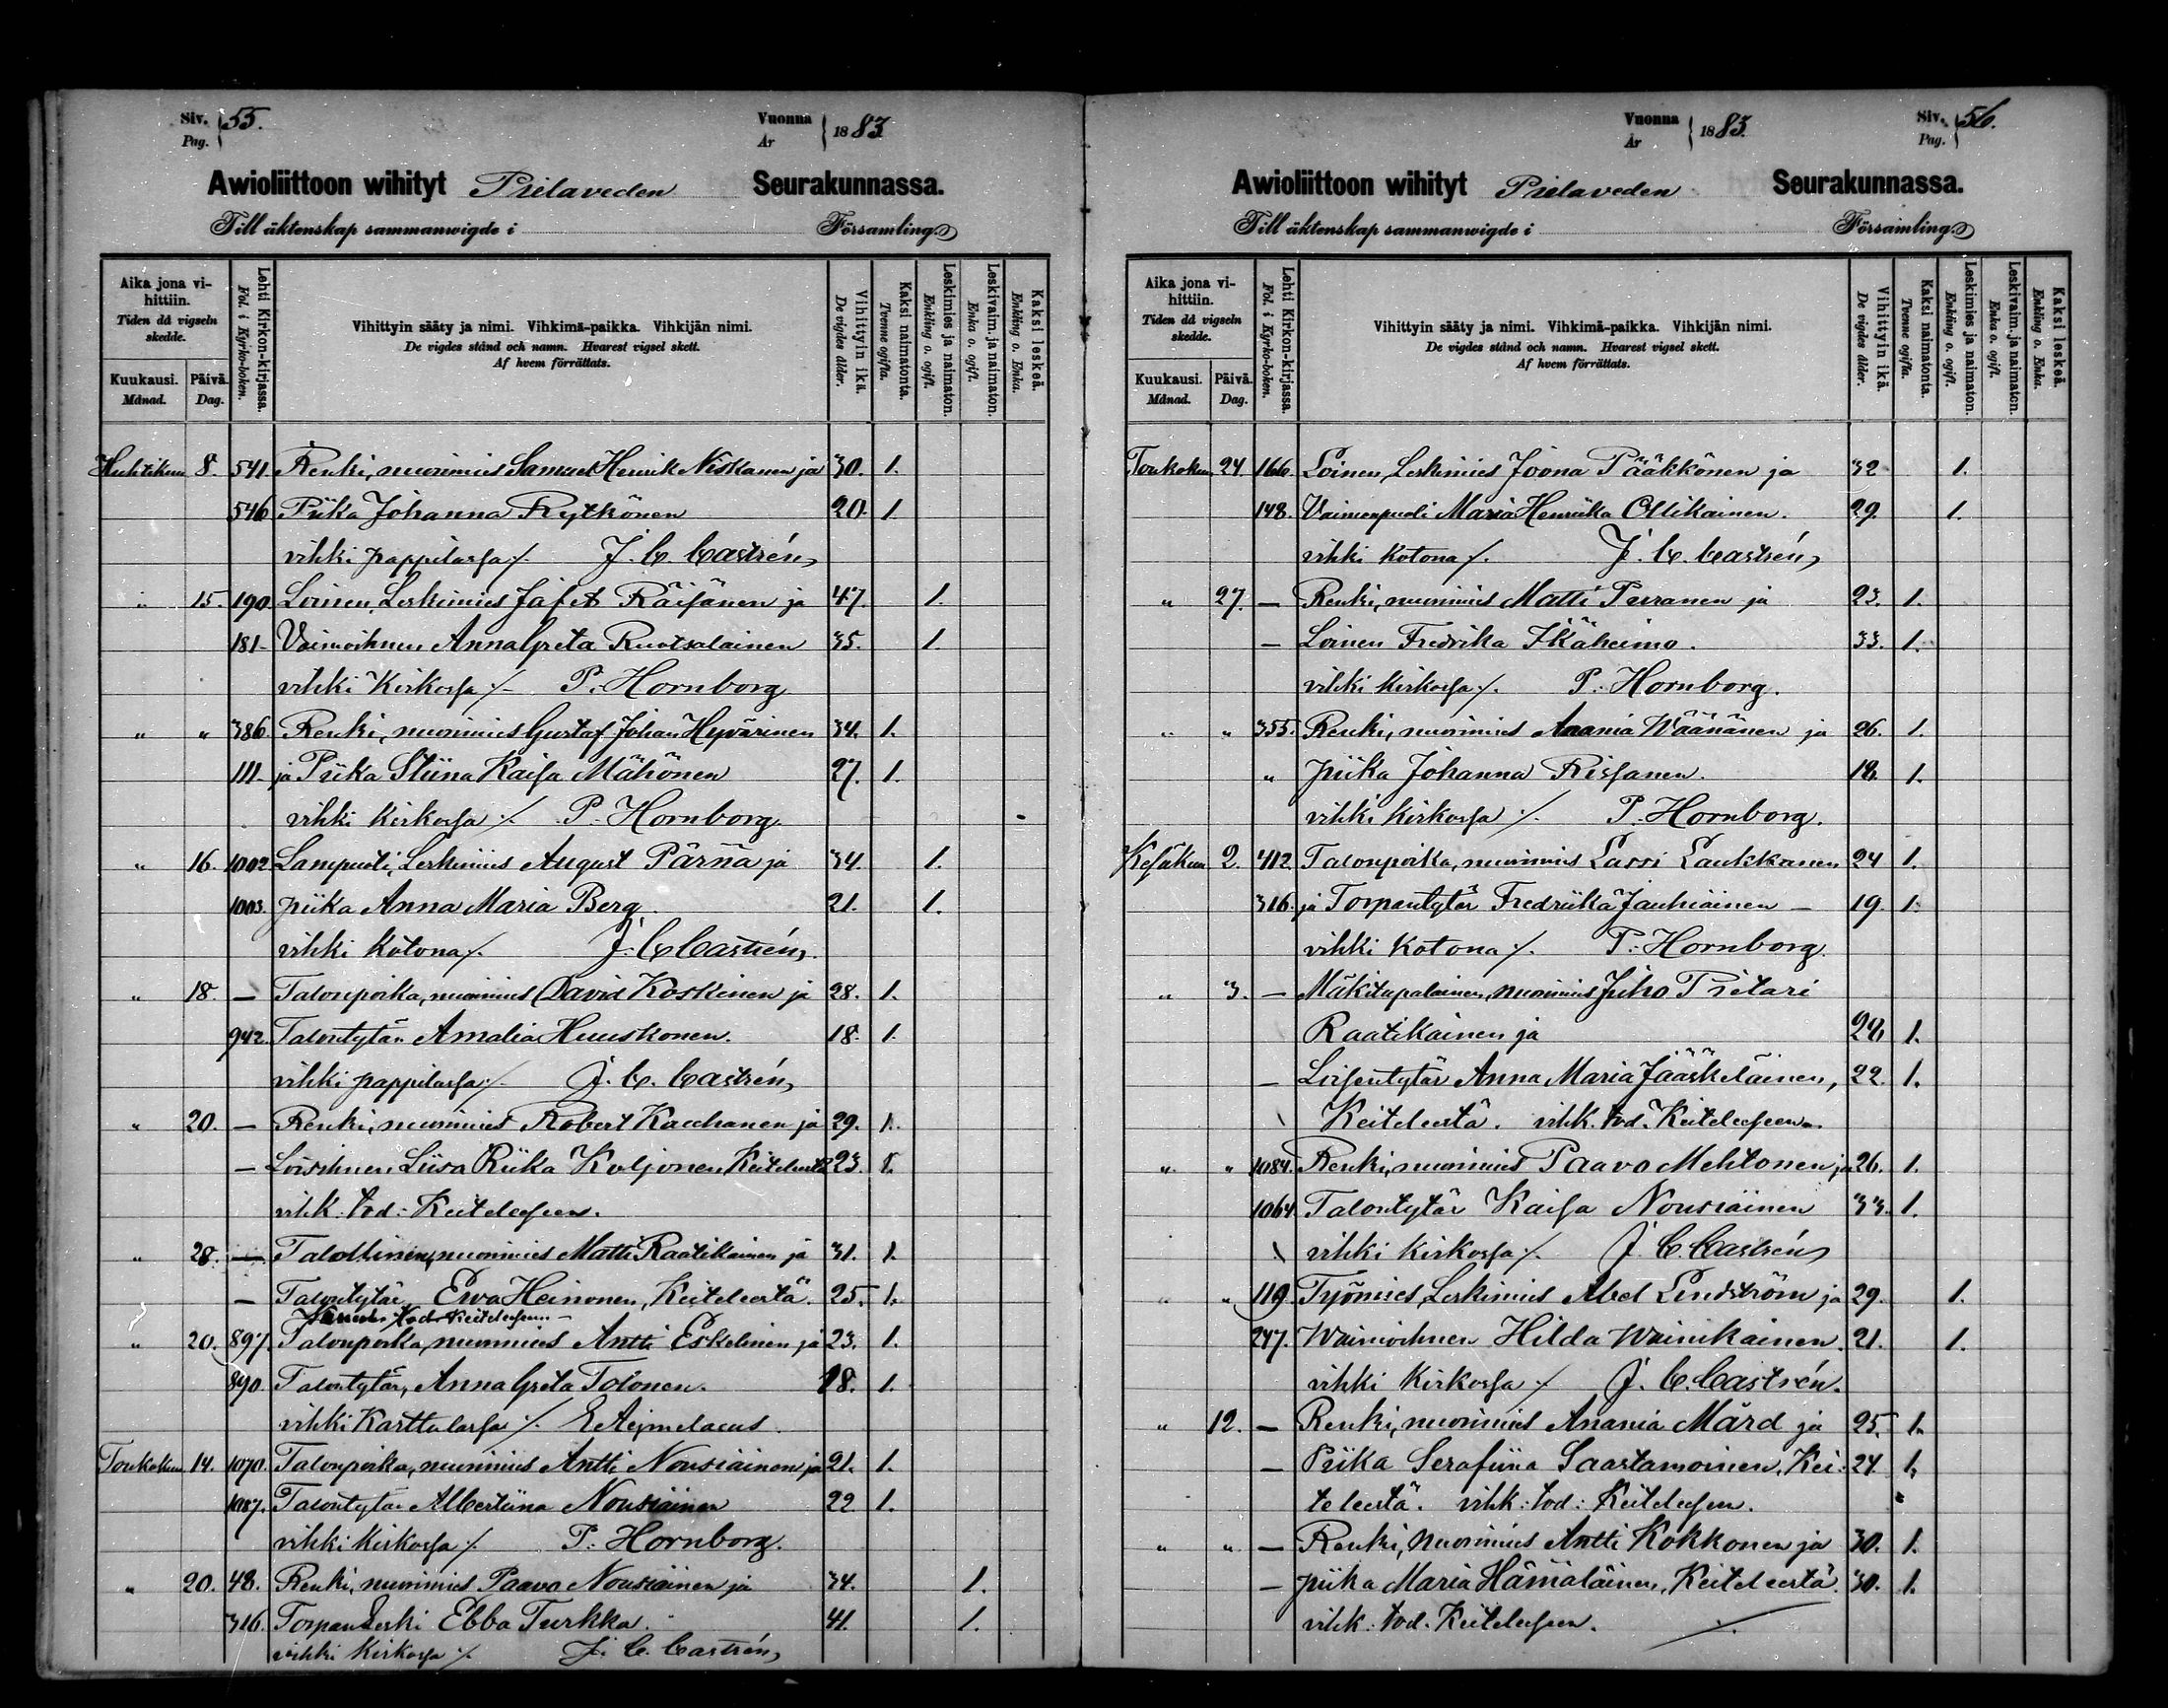 Siv. Pag. 55.
Vuonna År 1883.
Awioliittoon wihityt Pielaveden Seurakunnassa.
Till äktenskap sammanwigde i Församling.
Aika jona vihittiin. Tiden då vigseln skedde.
Kuukausi. Månad.
Päivä. Dag.
Lehti Kirkon-kirjassa. Fol. i Kyrko-boken.
Vihittyin sääty ja nimi. Vihkimä-paikka. Vihkijän nimi.
De vigdes stånd och namn. Hvarest vigsel skett.
Af hvem förrättats.
Vihittyin ikä. De vigdes ålder.
Kaksi naimatonta. Tvenne ogifta.
Leskimies ja naimaton. Enkling o. ogift.
Leskivaim. ja naimaton. Enka o. ogift.
Kaksi leskeä. Enkling o. Enka.
Huhtikuu 8. 541. Renki, nuorimies Samuel Henrik Niskanen ja 30. 1.
546 Piika Johanna Rytkönen 20. 1.
vihki pappilassa ./. J. C. Castrén,
" 15. 190. Loinen, Leskimies Jafet Räisänen ja 47. 1.
181. Vaimoihnen Anna Greta Ruotsalainen 35. 1.
vihki Kirkossa ./. P. Hornborg
" " 386. Renki, nuorimies Gustaf Johan Hyvärinen 34. 1.
111. ja Piika Stiina Kaisa Mähönen 27. 1.
vihki Kirkossa ./. P. Hornborg.
" 16. 1002. Lampuoti, Leskimies August Pärnä ja 34. 1.
1003. piika Anna Maria Berg. 21. 1.
vihki Kotona ./. J. C Castrén,
" 18. — Talonpoika, nuorimies David Koskinen ja 28. 1.
942. Talontytär Amalia Huuskonen. 18. 1.
vihki pappilassa ./. J. C. Castrén,
" 20. — Renki, nuorimies Robert Kauhanen ja 29. 1.
— Loisihnen Liisa Riika Koljonen, Keiteleestä 23. 1.
vihk. tod: Keiteleeseen.
" 28. — Talollinen, nuorimies Matti Raatikainen ja 31. 1.
— Talontytär Ewa Heinonen, Keiteleestä. 25. 1.
tod. Keiteleeseen.
" 20. 897. Talonpoika, nuorimies Antti Eskelinen ja 23. 1.
890. Talontytär, Anna Greta Tolonen. 18. 1.
vihki Karttulassa ./. E Aejmelaeus.
Toukokuu 14. 1070. Talonpoika, nuorimies Antti Nousiainen ja 21. 1.
1087. Talontytär Albertiina Nousiainen 22 1.
vihki Kirkossa ./. P. Hornborg.
" 20. 48. Renki, nuorimies Paavo Nousiainen ja 34. 1.
316. Torpan Leski Ebba Turkka. 41. 1.
vihki Kirkossa ./. J. C. Castrén,
Vuonna År 1883.
Siv. Pag. 56.
Awioliittoon wihityt Pielaveden Seurakunnassa.
Till äktenskap sammanwigde i Församling.
Aika jona vihittiin. Tiden då vigseln skedde.
Kuukausi. Månad.
Päivä. Dag.
Lehti Kirkon-kirjassa. Fol. i Kyrko-boken.
Vihittyin sääty ja nimi. Vihkimä-paikka. Vihkijän nimi.
De vigdes stånd och namn. Hvarest vigsel skett.
Af hvem förrättats.
Vihittyin ikä. De vigdes ålder.
Kaksi naimatonta. Tvenne ogifta.
Leskimies ja naimaton. Enkling o. ogift.
Leskivaim. ja naimaton. Enka o. ogift.
Kaksi leskeä. Enkling o. Enka.
Toukokuu 24. 166. Loinen, Leskimies Joona Pääkkönen ja 32 1.
148. Vaimonpuoli Maria Henriika Ollikainen. 29. 1.
vihki Kotona ./. J. C. Castrén,
" 27. — Renki, nuorimies Matti Purranen ja 23. 1.
— Loinen Fredrika Ikäheimo. 33. 1.
vihki Kirkossa ./. P. Hornborg.
" " 355. Renki, nuorimies Anania Wäänänen ja 26. 1.
" piika Johanna Rissanen. 18. 1.
vihki Kirkossa ./. P. Hornborg.
Kesäkuu 2. 412. Talonpoika, nuorimies Lassi Laukkanen 24 1.
316. ja Torpantytär Fredriika Jauhiainen — 19. 1.
vihki Kotona ./. P. Hornborg.
" 3. — Mäkitupalainen, nuorimies Juho Pietari
Raatikainen ja 28 1.
— Loisentytär Anna Maria Jääskeläinen, 22. 1.
Keiteleestä. vihk. tod. Keiteleeseen.
" " 1084. Renki, nuorimies Paavo Mehtonen ja 26. 1.
1064. Talontytär Kaisa Nousiainen 33. 1.
vihki Kirkossa ./. J. C Castrén,
" " 119. Työmies, Leskimies Abel Lindström ja 29. 1.
247. Waimoihnen Hilda Wainikainen. 21. 1.
vihki Kirkossa ./. J. C. Castrén.
" 12. — Renki, nuorimies Anania Mård ja 25. 1.
— Piika Serafiina Saastamoinen, Kei- 24. 1.
teleestä. vihk: tod: Keiteleeseen.
" " — Renki, nuorimies Antti Kokkonen ja 30. 1.
— piika Maria Hämäläinen, Keiteleestä. 30. 1.
vihk: tod. Keiteleeseen. ./.